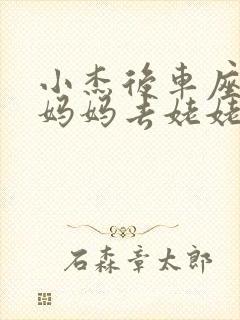 小杰後車座
妈妈去姥姥
石森章太郎